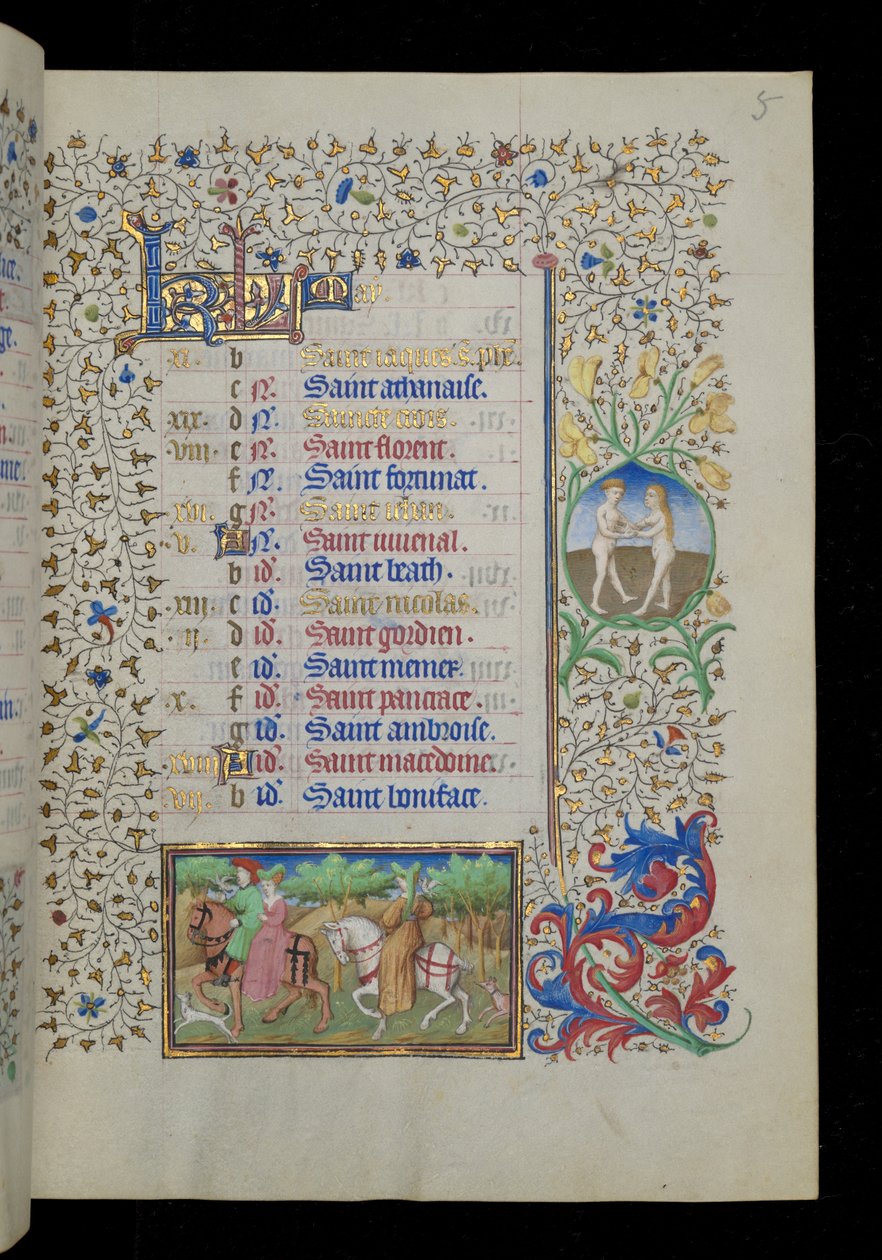 5
KL May.
.xi. b Saint iaques. s. phe.
c N. Saint athanaise.
.xix. d N. Saincte crois.
.viii. e N. Saint florent.
f N. Saint fortunat.
.xvi. g N. Saint iehan.
.v. A N. Saint iuuenal.
b id. Saint beath.
.xiii. c id. Saint nicolas.
.ii. d id. Saint gordien.
e id. Saint memer.
.x. f id. Saint pancrace.
g id. Saint ambroise.
.xviii. A id. Saint macedoine.
.vii. b id. Saint boniface.